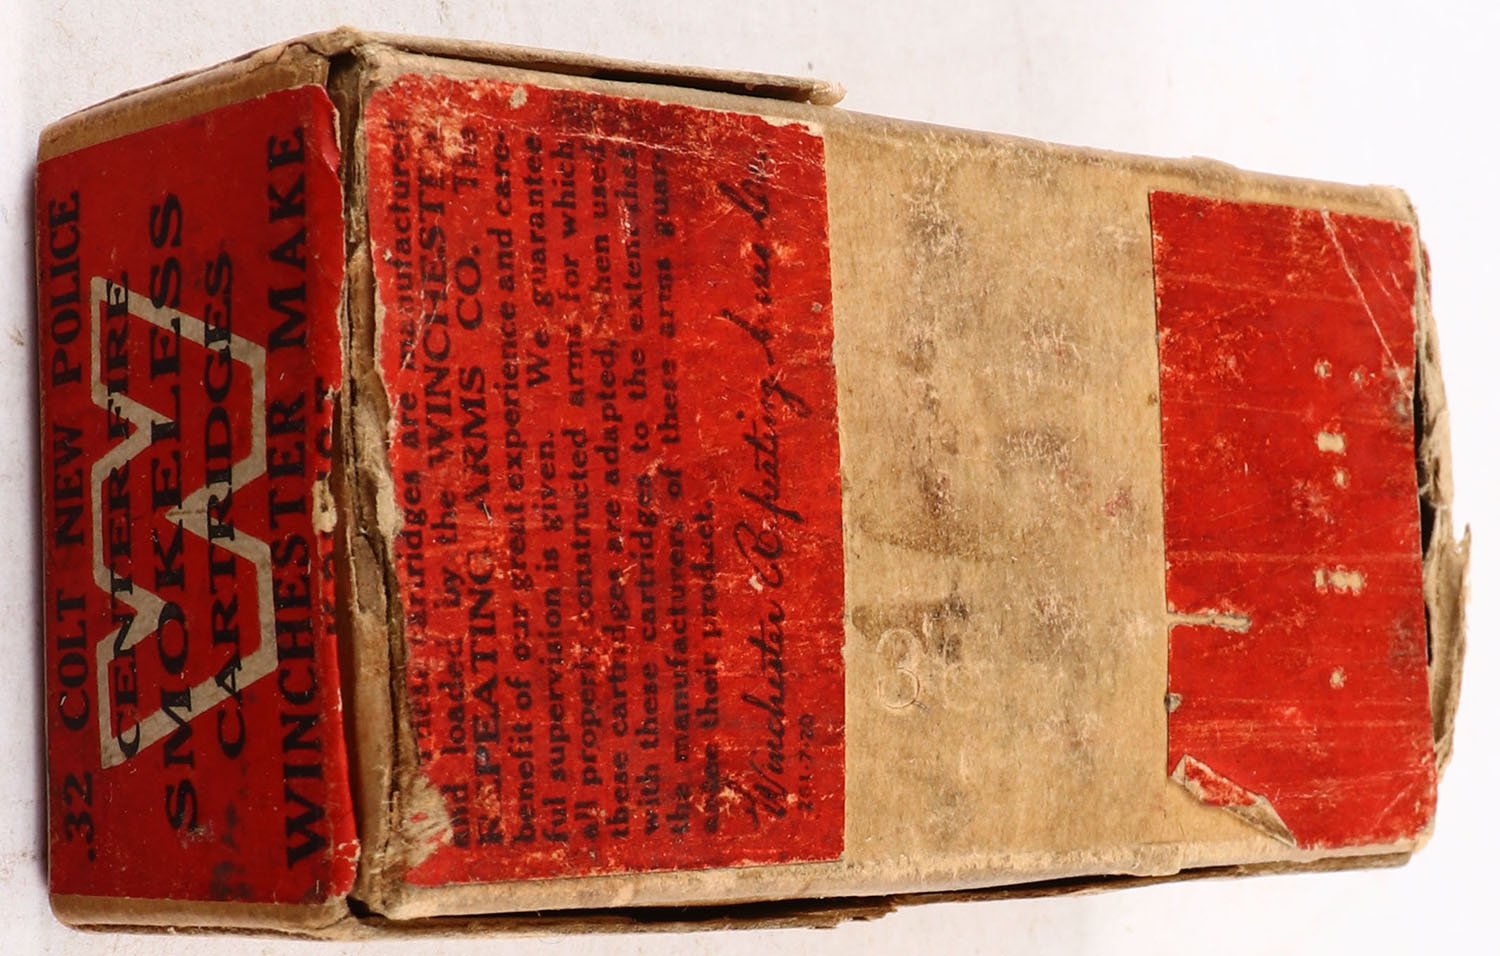 .32 COLT NEW POLICE
CENTERFIRE
SMOKELESS
CARTRIDGES
WINCHESTER MAKE
These cartridges are manufactured
and loaded by the WINCHESTER
REPEATING ARMS CO. The
benefit of our great experience and care-
ful supervision is given. We guarantee
all properly constructed arms for which
these cartridges are adapted, when used
with these cartridges to the extent that
the manufacturers of these arms guar-
antee their product.
Winchester Repeating Arms Co.